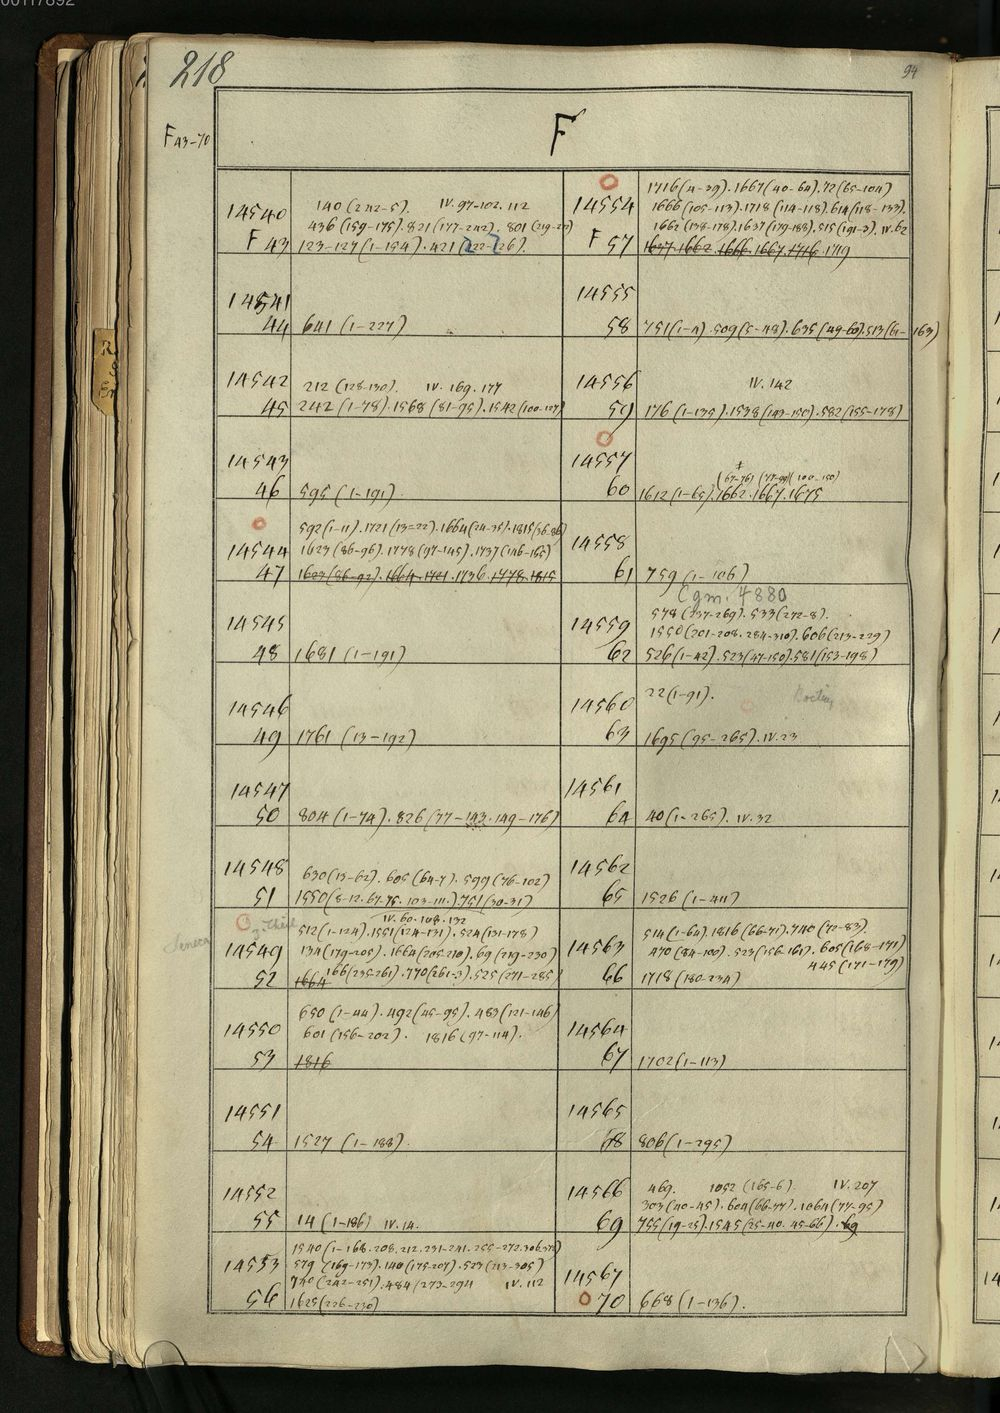 00117892
218
94
F 43-70
F
14540
F 43
140 (242-5). IV. 97-102. 112
436 (159-175). 821 (177-242). 801 (219-27)
123-127 (1-154). 421 (222-226).
14541
44
641 (1-227)
14542
45
212 (128-130). IV. 169. 177
242 (1-78). 1568 (81-95). 1542 (100-127)
14543
46
595 (1-191)
14544
47
592 (1-11). 1721 (13-22). 1664 (24-35). 1815 (36-86)
1623 (86-96). 1778 (97-145). 1737 (146-155)
1603 (86-92). 1664. 1721. 1736. 1778. 1815
14545
48
1681 (1-191)
14546
49
1761 (13-192)
14547
50
804 (1-74). 826 (77-143. 149-176)
14548
51
630 (13-62). 605 (64-7). 599 (76-102)
1550 (8-12. 67-75. 103-111.) 751 (30-31)
Seneca
14549
52
IV. 60. 108. 132
512 (1-124). 1551 (124-131). 524 (131-178)
134 (179-205). 1664 (205-210). 69 (219-230)
1664 166 (235-261). 770 (261-3). 525 (271-285)
14550
53
650 (1-44). 492 (45-95). 483 (121-146)
601 (156-202). 1816 (97-114).
1816
14551
54
1527 (1-188).
14552
55
14 (1-186) IV. 14.
14553
56
1540 (1-168. 208. 212. 231-241. 255-272. 306
579 (169-173). 140 (175-207). 523 (213-305)
740 (242-251). 484 (273-294 IV. 112
1625 (226-230)
14554
F 57
1716 (4-39). 1667 (40-64). 72 (65-104)
1666 (105-113). 1718 (114-118). 614 (118-133).
1662 (138-178). 1637 (179-188). 515 (191-3). IV. 62
1637. 1662. 1666. 1667. 1716. 1719
14555
58
751 (1-4). 509 (5-48). 635 (49-60). 513 (61-163)
14556
59
IV. 142
176 (1-135). 1538 (143-150). 582 (155-178)
14557
60
(67-76) (77-99) (100-150)
1612 (1-65). 1662. 1667. 1675
14558
61
759 (1-106)
14559
62
Cgm. 4880
578 (237-269). 533 (272-8).
1550 (201-208. 284-310). 606 (213-229)
526 (1-42). 523 (47-150). 581 (153-198)
14560
63
22 (1-91).
1695 (95-265). IV. 23
14561
64
40 (1-265). IV. 32
14562
65
1526 (1-411)
14563
66
514 (1-60). 1816 (66-71). 740 (72-83).
470 (84-100). 523 (156-161). 605 (168-171)
445 (171-179)
1718 (180-234)
14564
67
1702 (1-113)
14565
68
806 (1-295)
14566
69
469. 1052 (165-6). IV. 207
303 (40-45). 604 (66-77). 1064 (77-95)
755 (19-25). 1545 (25-40. 45-66). 69
14567
70
668 (1-136).